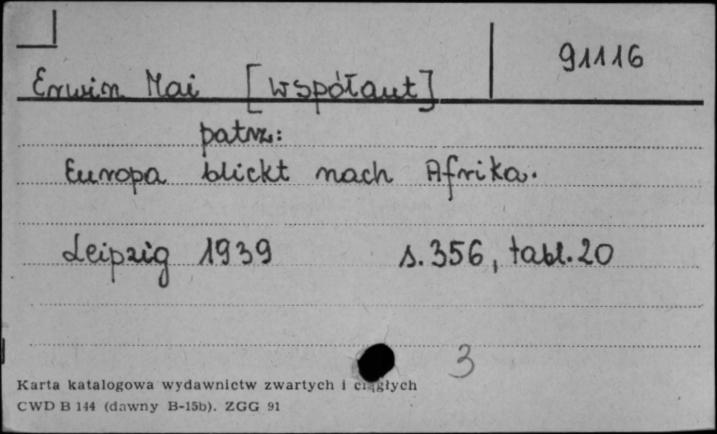 91116
Erwin Mai [współaut]
patrz:
Europa blickt nach Afrika.
Leipzig 1939 s. 356, tabl. 20
3
Karta katalogowa wydawnictw zwartych i ciągłych
CWD B 144 (dawny B-15b). ZGG 91